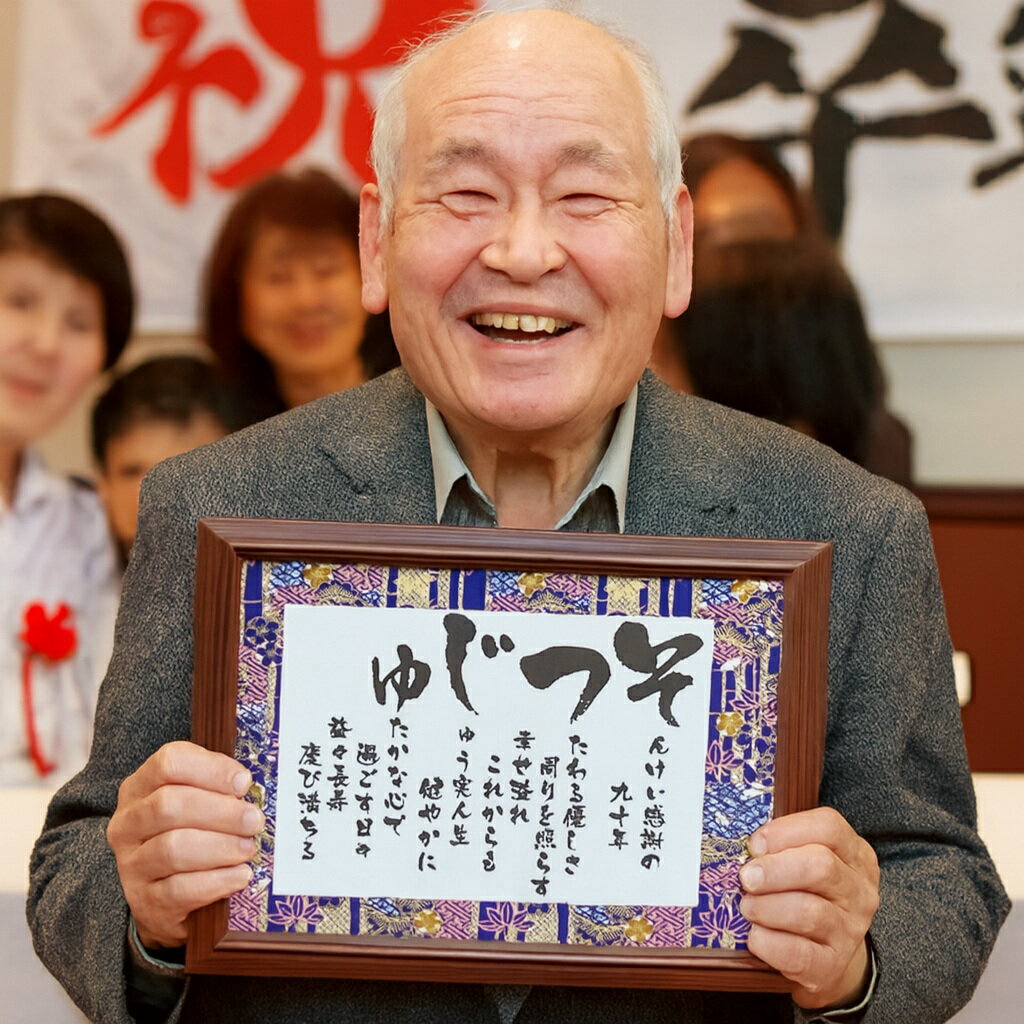 祝卒
そつじゅ
んけい感謝の
九十年
たわる優しさ
周りを照らす
幸せ溢れ
これからも
ゅう実人生
健やかに
たかな心で
過ごす日々
益々長寿
慶び満ちる